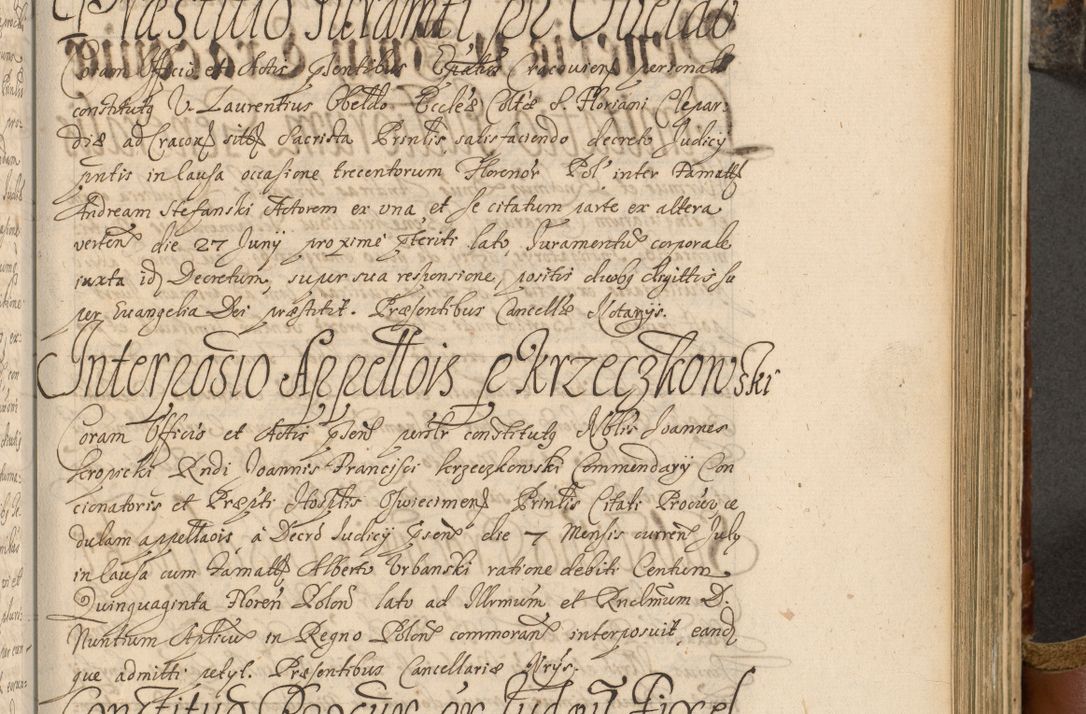 Præstitio Juramti per Obeldo
Coram Officio et Actis psentibus Epatus Cracovien personalr
constitutq V. Laurentius Obeldo Eccłæ Coltæ S. Floriani Clepar-
diæ ad Cracoꝟ sitꝭ Sacrista Prinłis satisfaciendo decreto Judicij
pntis in Causa occasione trecentorum Florenor Pol inter Famatꝭ
Andream Stefanski Actorem ex una et se citatum parte ex altera
verten die 27 Junij proxime pteriti lato, Juramentū corporale
juxta id Decretum, super sua responsione, positis duobq digittis su
per Euangelia Dei præstitit. Præsentibus Cancellæ Notarijs.
Interposio Appellois p Krzeczkowski
Coram Officio et Actis psen persłr constitutq Nobłis Joannes
Kropicki Rndi Joannis Francisci Krzeczkowski Commendarij Con
cionatoris et Præpti Hospłis Oswiecimen Prinłis Citati Procur ce
dulam appellaois à Decrō Judicij psen die 7 Mensis curren Julij
in Causa cum Famatꝭ Alberto Urbanski ratione debiti Centum
Quinquaginta Floren Polon lato ad Illrmum et Rndmum D.
Nuntium Apticū in Regno Polon commoran interposuit, eand
que admitti petyt. Præsentibus Cancellariæ Nrijs.
Constitutio Procur per Ludov Fixel